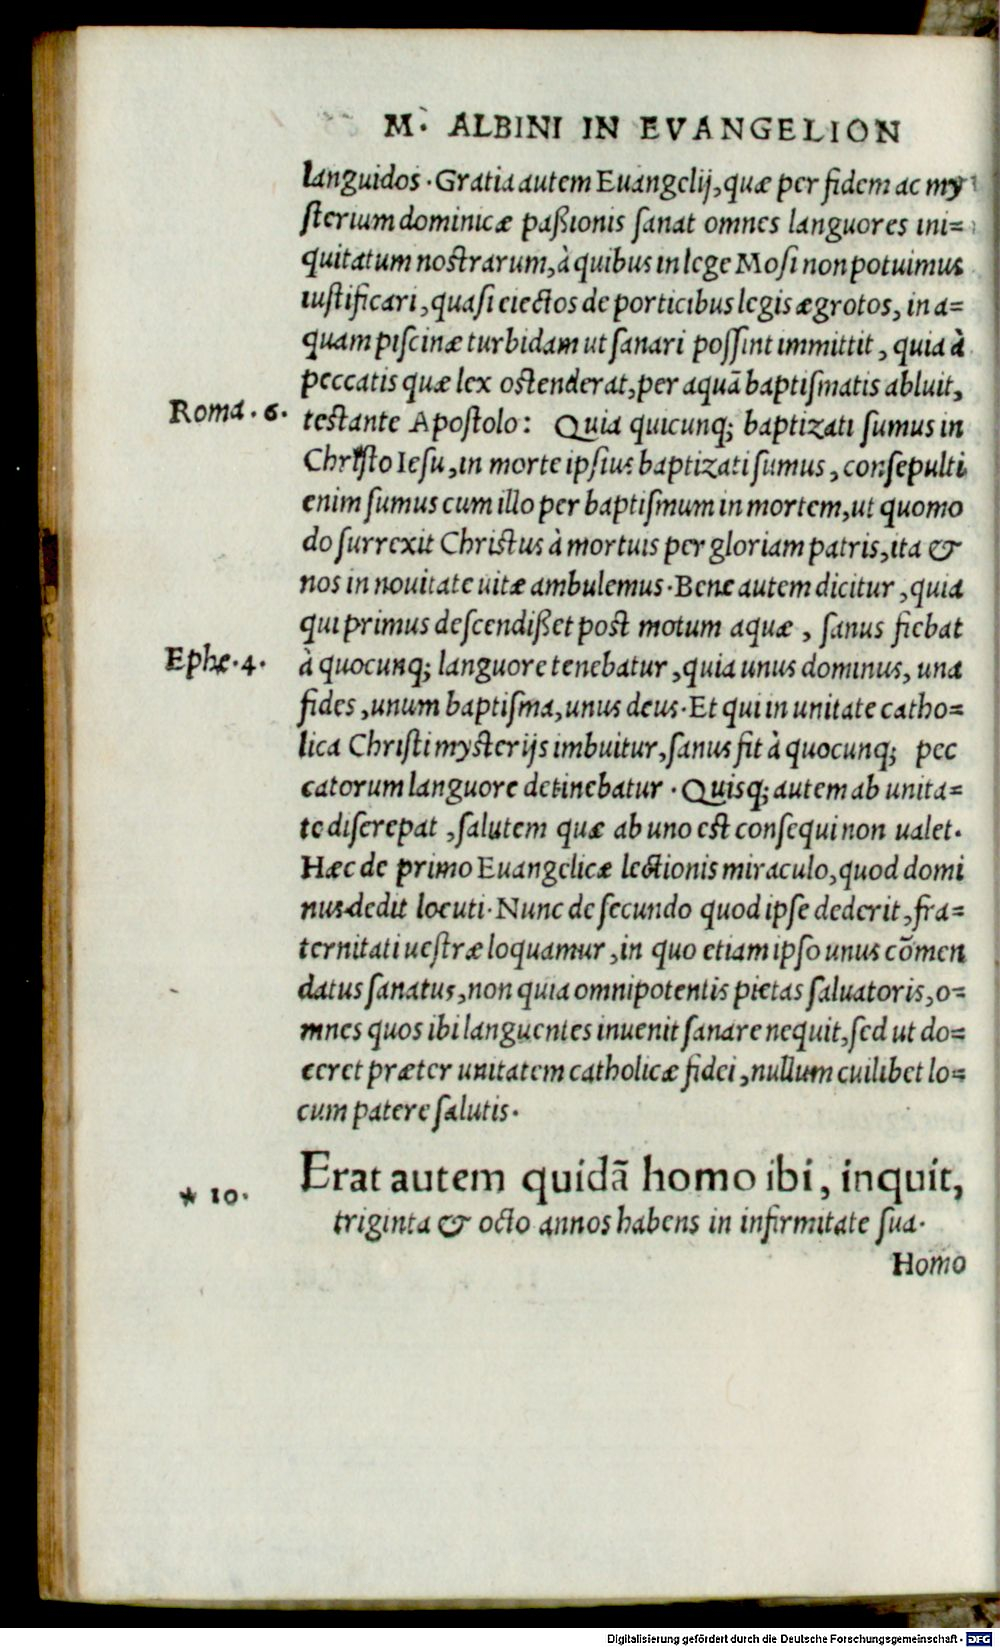 M. ALBINI IN EVANGELION
languidos. Gratia autem Euangelij, quæ per fidem ac my
ſterium dominicæ paßionis ſanat omnes languores ini=
quitatum noſtrarum, à quibus in lege Moſi non potuimus
iuſtificari, quaſi eiectos de porticibus legis ægrotos, in a=
quam piſcinæ turbidam ut ſanari poſſint immittit, quia à
peccatis quæ lex oſtenderat, per aquā baptiſmatis abluit,
Roma. 6. teſtante Apoſtolo: Quia quicunq; baptizati ſumus in
Chriſto Ieſu, in morte ipſius baptizati ſumus, conſepulti
enim ſumus cum illo per baptiſmum in mortem, ut quomo
do ſurrexit Chriſtus à mortuis per gloriam patris, ita &
nos in nouitate uitæ ambulemus. Bene autem dicitur, quia
qui primus deſcendißet poſt motum aquæ, ſanus fiebat
Ephe. 4. à quocunq; languore tenebatur, quia unus dominus, una
fides, unum baptiſma, unus deus. Et qui in unitate catho=
lica Chriſti myſterijs imbuitur, ſanus fit à quocunq; pec
catorum languore detinebatur. Quisq; autem ab unita=
te diſcrepat, ſalutem quæ ab uno eſt conſequi non ualet.
Hæc de primo Euangelicæ lectionis miraculo, quod domi
nus dedit locuti. Nunc de ſecundo quod ipſe dederit, fra=
ternitati ueſtræ loquamur, in quo etiam ipſo unus cōmen
datus ſanatus, non quia omnipotentis pietas ſaluatoris, o=
mnes quos ibi languentes inuenit ſanare nequit, ſed ut do=
ceret præter unitatem catholicæ fidei, nullum cuilibet lo=
cum patere ſalutis.
* 10. Erat autem quidā homo ibi, inquit,
triginta & octo annos habens in infirmitate ſua.
Homo
Digitalisierung gefördert durch die Deutsche Forschungsgemeinschaft - DFG